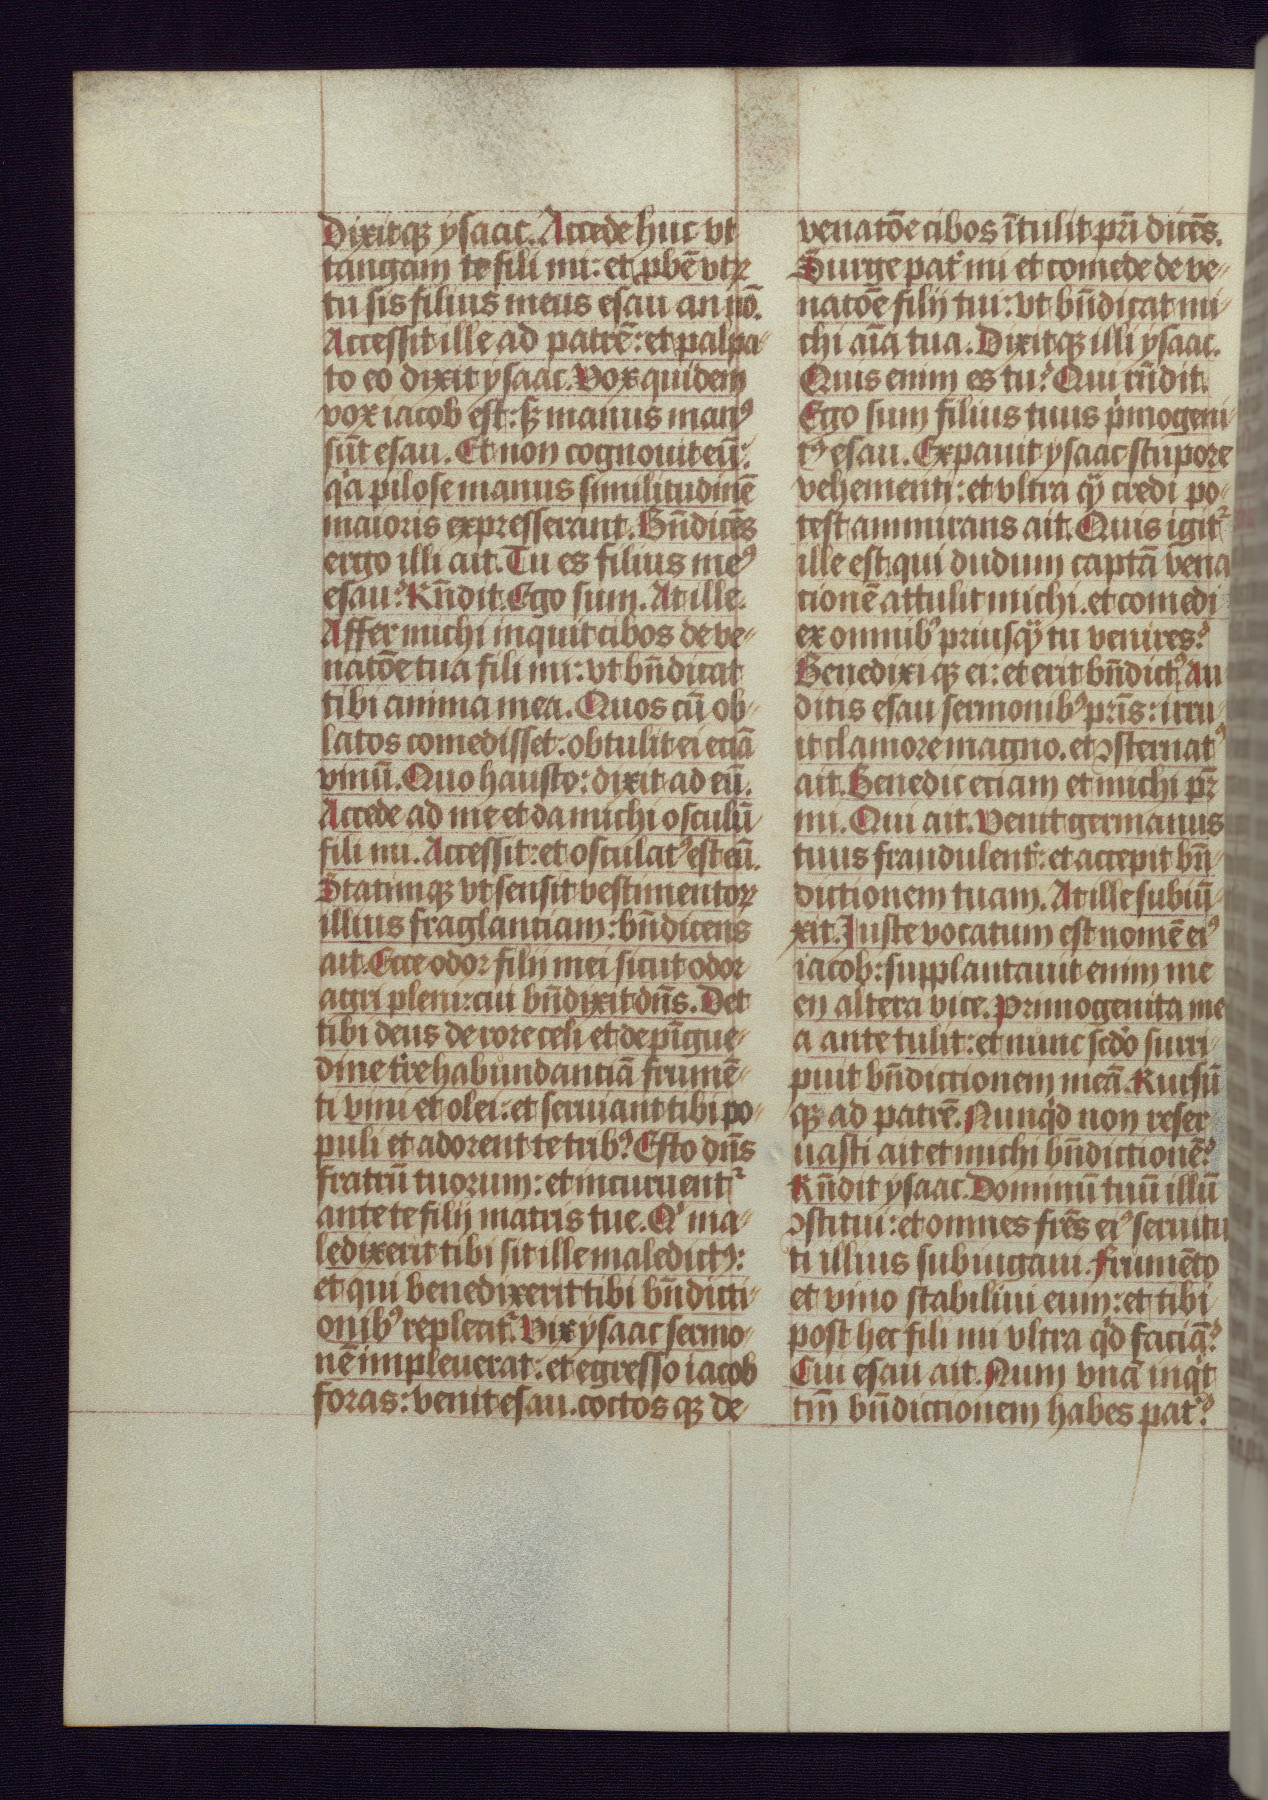 Dixitqꝫ ysaac. Accede huc vt
tangam te fili mi: et ꝓbē vtꝝ
tu sis filius meus esau an nō.
Accessit ille ad patrē: et palpa-
to eo dixit ysaac. Vox quidem
vox iacob est: sꝫ manus manꝰ
sūt esau. Et non cognouit eū:
qͥa pilose manus similitudinē
maioris expresserant. Bn̄dicēs
ergo illi ait. Tu es filius meꝰ
esau? Rn̄dit. Ego sum. At ille.
Affer michi inquit cibos de ve-
natōe tua fili mi: vt bn̄dicat
tibi anima mea. Quos cū ob-
latos comedisset: obtulit ei eciā
vinū. Quo hausto: dixit ad eū.
Accede ad me et da michi osculū
fili mi. Accessit: et osculatꝰ est eū.
Statimqꝫ vt sensit vestimentoꝝ
illius fraglantiam: bn̄dicens
ait. Ecce odor filij mei sicut odor
agri pleni: cui bn̄dixit dn̄s. Det
tibi deus de rore celi et de pīgue-
dine tr̄re habundanciā frumē-
ti vini et olei: et seruiant tibi po-
puli et adorent te tribꝰ. Esto dn̄s
fratrū tuorum: et incuruentᷣ
ante te filij matris tue. Qͥ ma-
ledixerit tibi sit ille maledictꝰ:
et qui benedixerit tibi bn̄dicti-
onibꝰ repleatᷣ. Vix ysaac sermo-
nē impleuerat: et egresso iacob
foras: venit esau. coctosqꝫ de-
venatōe cibos ītulit pr̄i dicēs.
Surge patͬ mi et comede de ve-
natōe filij tui: vt bn̄dicat mi-
chi aīa tua. Dixitqꝫ illi ysaac.
Quis enim es tu? Qui rn̄dit.
Ego sum filius tuus pͥmogeni-
tꝰ esau. Expauit ysaac stupore
vehementi: et vltra qͣ̄ credi po-
test ammirans ait. Quis igitᷣ
ille est qui dudum captā vena
tionē attulit michi. et comedi
ex omnibꝰ priusqͣ̄ tu venires?
Benedixiqꝫ ei: et erit bn̄dictꝰ. Au
ditis esau sermonibꝰ pr̄is: irru-
it clamore magno. et ꝯsternatꝰ
ait. Benedic eciam et michi pr̄
mi. Qui ait. Venit germanus
tuus fraudulentͬ: et accepit bn̄-
dictionem tuam. At ille subiū-
xit. Juste vocatum est nomē eiꝰ
iacob: supplantauit enim me
en altera vice. Primogenita me
a ante tulit: et nunc scdo surri-
puit bn̄dictionem meā. Rursū
qꝫ ad patrē. Nunqͥd non reser-
uasti ait et michi bn̄dictionē?
Rn̄dit ysaac. Dominū tuū illū
ꝯstitui: et omnes fr̄es eiꝰ seruitu
ti illius subiugaui. Frumēto
et vino stabiliui eum: et tibi
post hec fili mi vltra qͥd faciā?
Cui esau ait. Num vnā inqͥt
tm̄ bn̄dictionem habes patͬ?